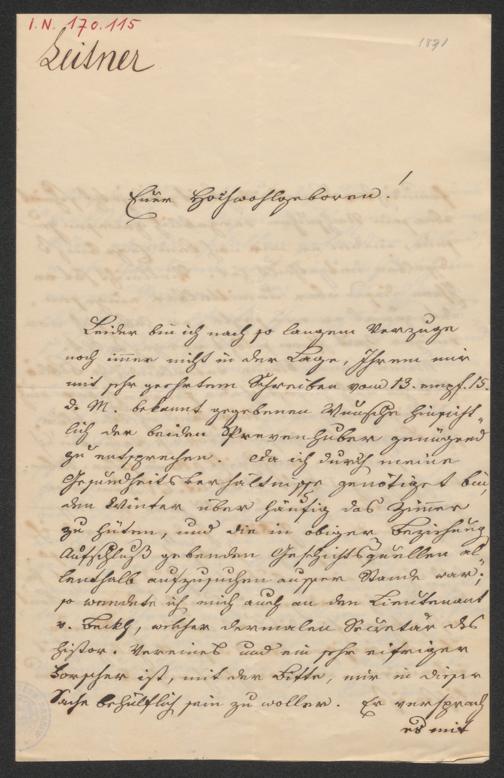 I.N. 170.115
Leitner
1891
Euer Hochwohlgeboren!
Leider bin ich nach so langem Verzuge
noch immer nicht in der Lage, Ihrem mir
mit sehr geehrtem Schreiben vom 13. empf. 15.
d. M. bekannt gegebenen Wunsche hinsicht"
lich der beiden Prevenhuber genügend
zu entsprechen. Da ich durch meine
Gesundheitsverhältnisse genötiget bin,
den Winter über häufig das Zimmer
zu hüten, und die in obiger Beziehung
Aufschluß gebenden Geschichtsquellen al"
lenthalb aufzusuchen ausser Stande war,
so wendete ich mich auch an den Lieutenant
v. Beckh, welcher dermalen Secretär des
histor. Vereines und ein sehr eifriger
Forscher ist, mit der Bitte, mir in dieser
Sache behülflich sein zu wollen. Er versprach
es mit